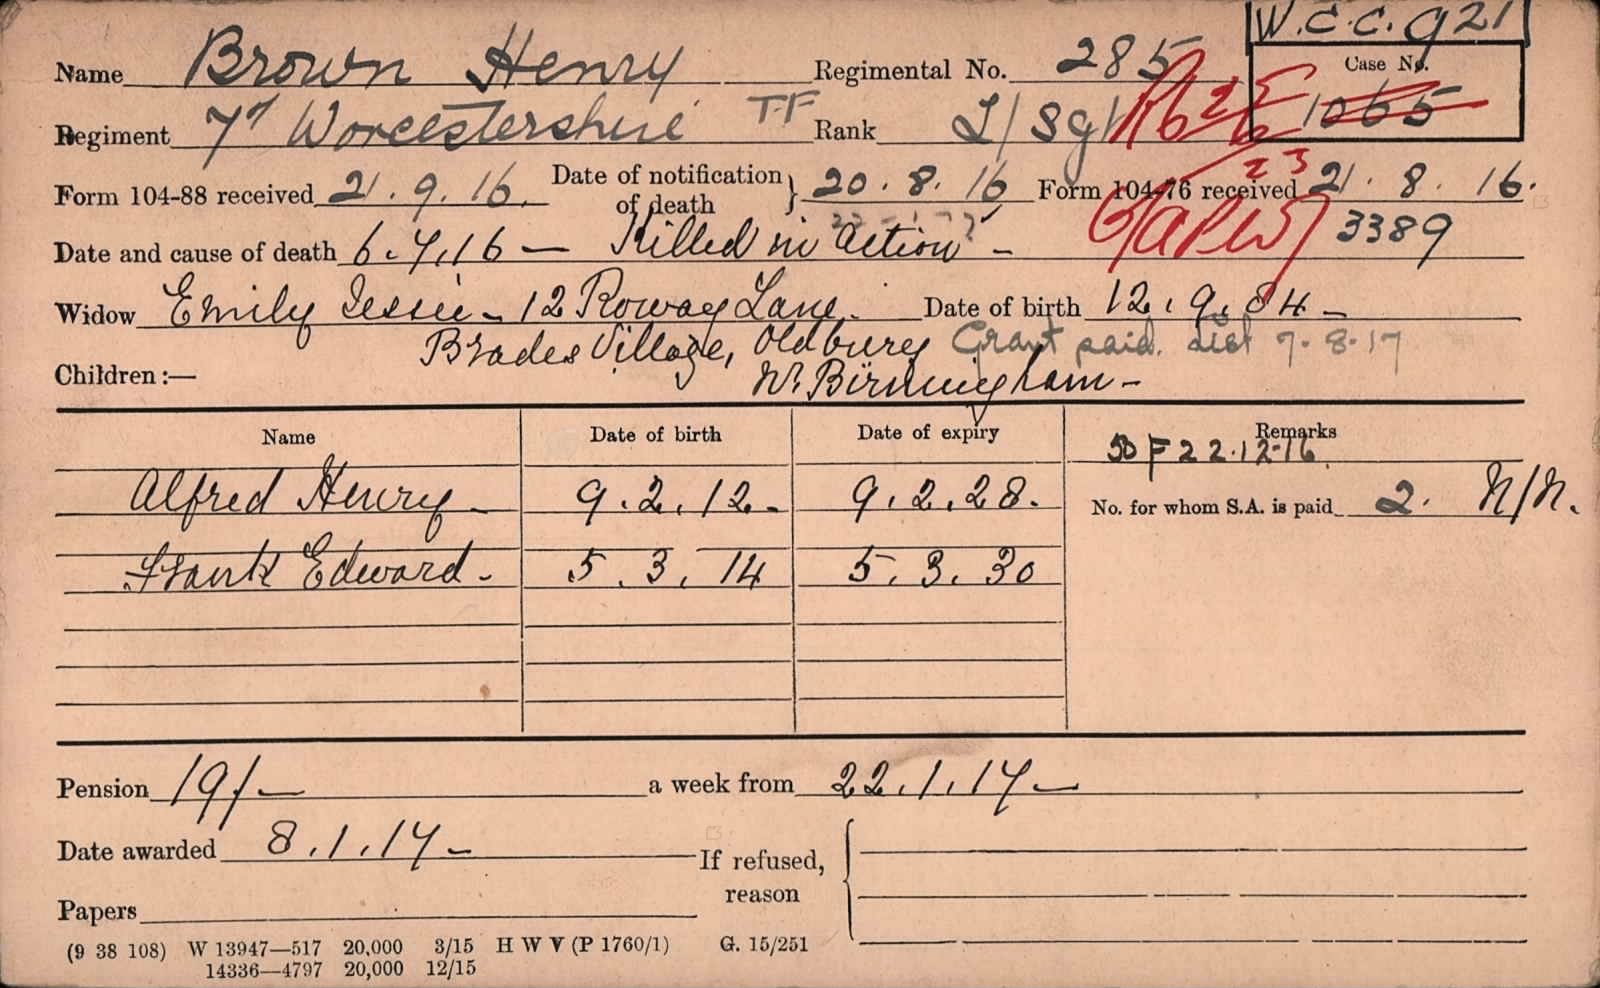 W.C.C. 921
Name Brown Henry Regimental No. 285 Case No. 1065
Regiment 7th Worcestershire T.F Rank L/Sgt
Form 104-88 received 21.9.16. Date of notification of death } 20.8.16 Form 104-76 received 21.8.16.
23
3389
Date and cause of death 6.7.16 — Killed in Action —
Widow Emily Jessie - 12 Roway Lane. Date of birth 12.9.84 -
Brades Village, Oldbury Grant paid. List 7.8.17
Children :— Nr. Birmingham -
Name Date of birth Date of expiry Remarks
F 22.12.16
Alfred Henry - 9.2.12. - 9.2.28. No. for whom S.A. is paid 2. N/N.
Frank Edward. - 5.3.14 5.3.30
Pension 19/- a week from 22.1.17 -
Date awarded 8.1.17 - If refused, reason
Papers
(9 38 108) W 13947—517 20,000 3/15 H W V (P 1760/1) G. 15/251
14336—4797 20,000 12/15